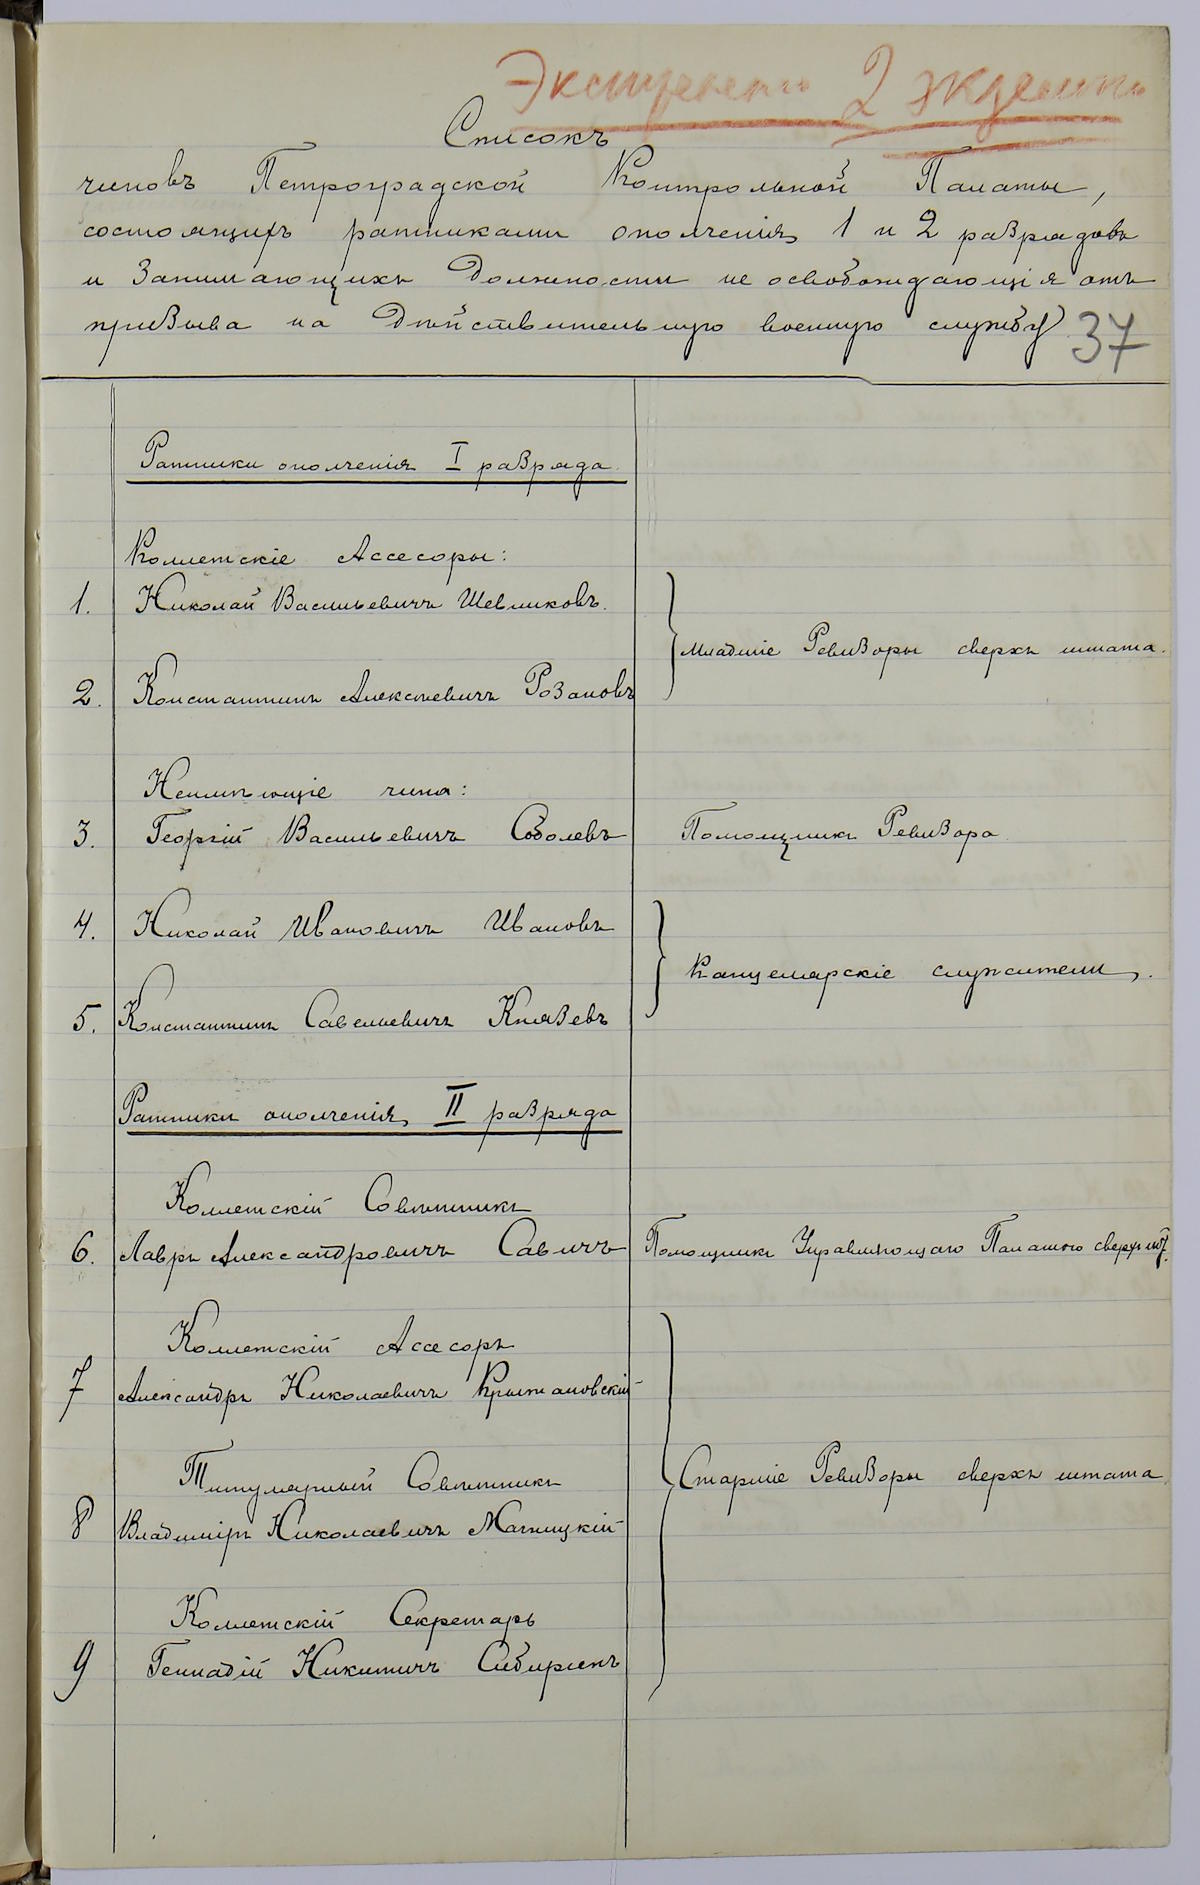 Экстренно 2 экземпл
Списокъ
чиновъ Петроградской Контрольной Палаты,
состоящихъ ратниками ополченія 1 и 2 разрядовъ
и занимающихъ должности не освобождающія отъ
призыва на дѣйствительную военную службу
37
Ратники ополченія I разряда.
Коллежскіе Ассесоры:
1. Николай Васильевичъ Шевляковъ.
Младшіе Ревизоры сверхъ штата.
2. Константинъ Алексѣевичъ Розановъ
Неимѣющіе чина:
3. Георгій Васильевичъ Соболевъ Помощникъ Ревизора.
4. Николай Ивановичъ Ивановъ
Канцелярскіе служители.
5. Константинъ Савельевичъ Князевъ
Ратники ополченія II разряда
Коллежскій Совѣтникъ
6. Лавръ Александровичъ Савичъ Помощникъ Управляющаго Палатою сверхъ
Коллежскій Ассесоръ
7 Александръ Николаевичъ Крыжановскій
Титулярный Совѣтникъ
Старшіе Ревизоры сверхъ штата
8 Владиміръ Николаевичъ Магницкій
Коллежскій Секретарь
9 Геннадій Никитичъ Сибирякъ